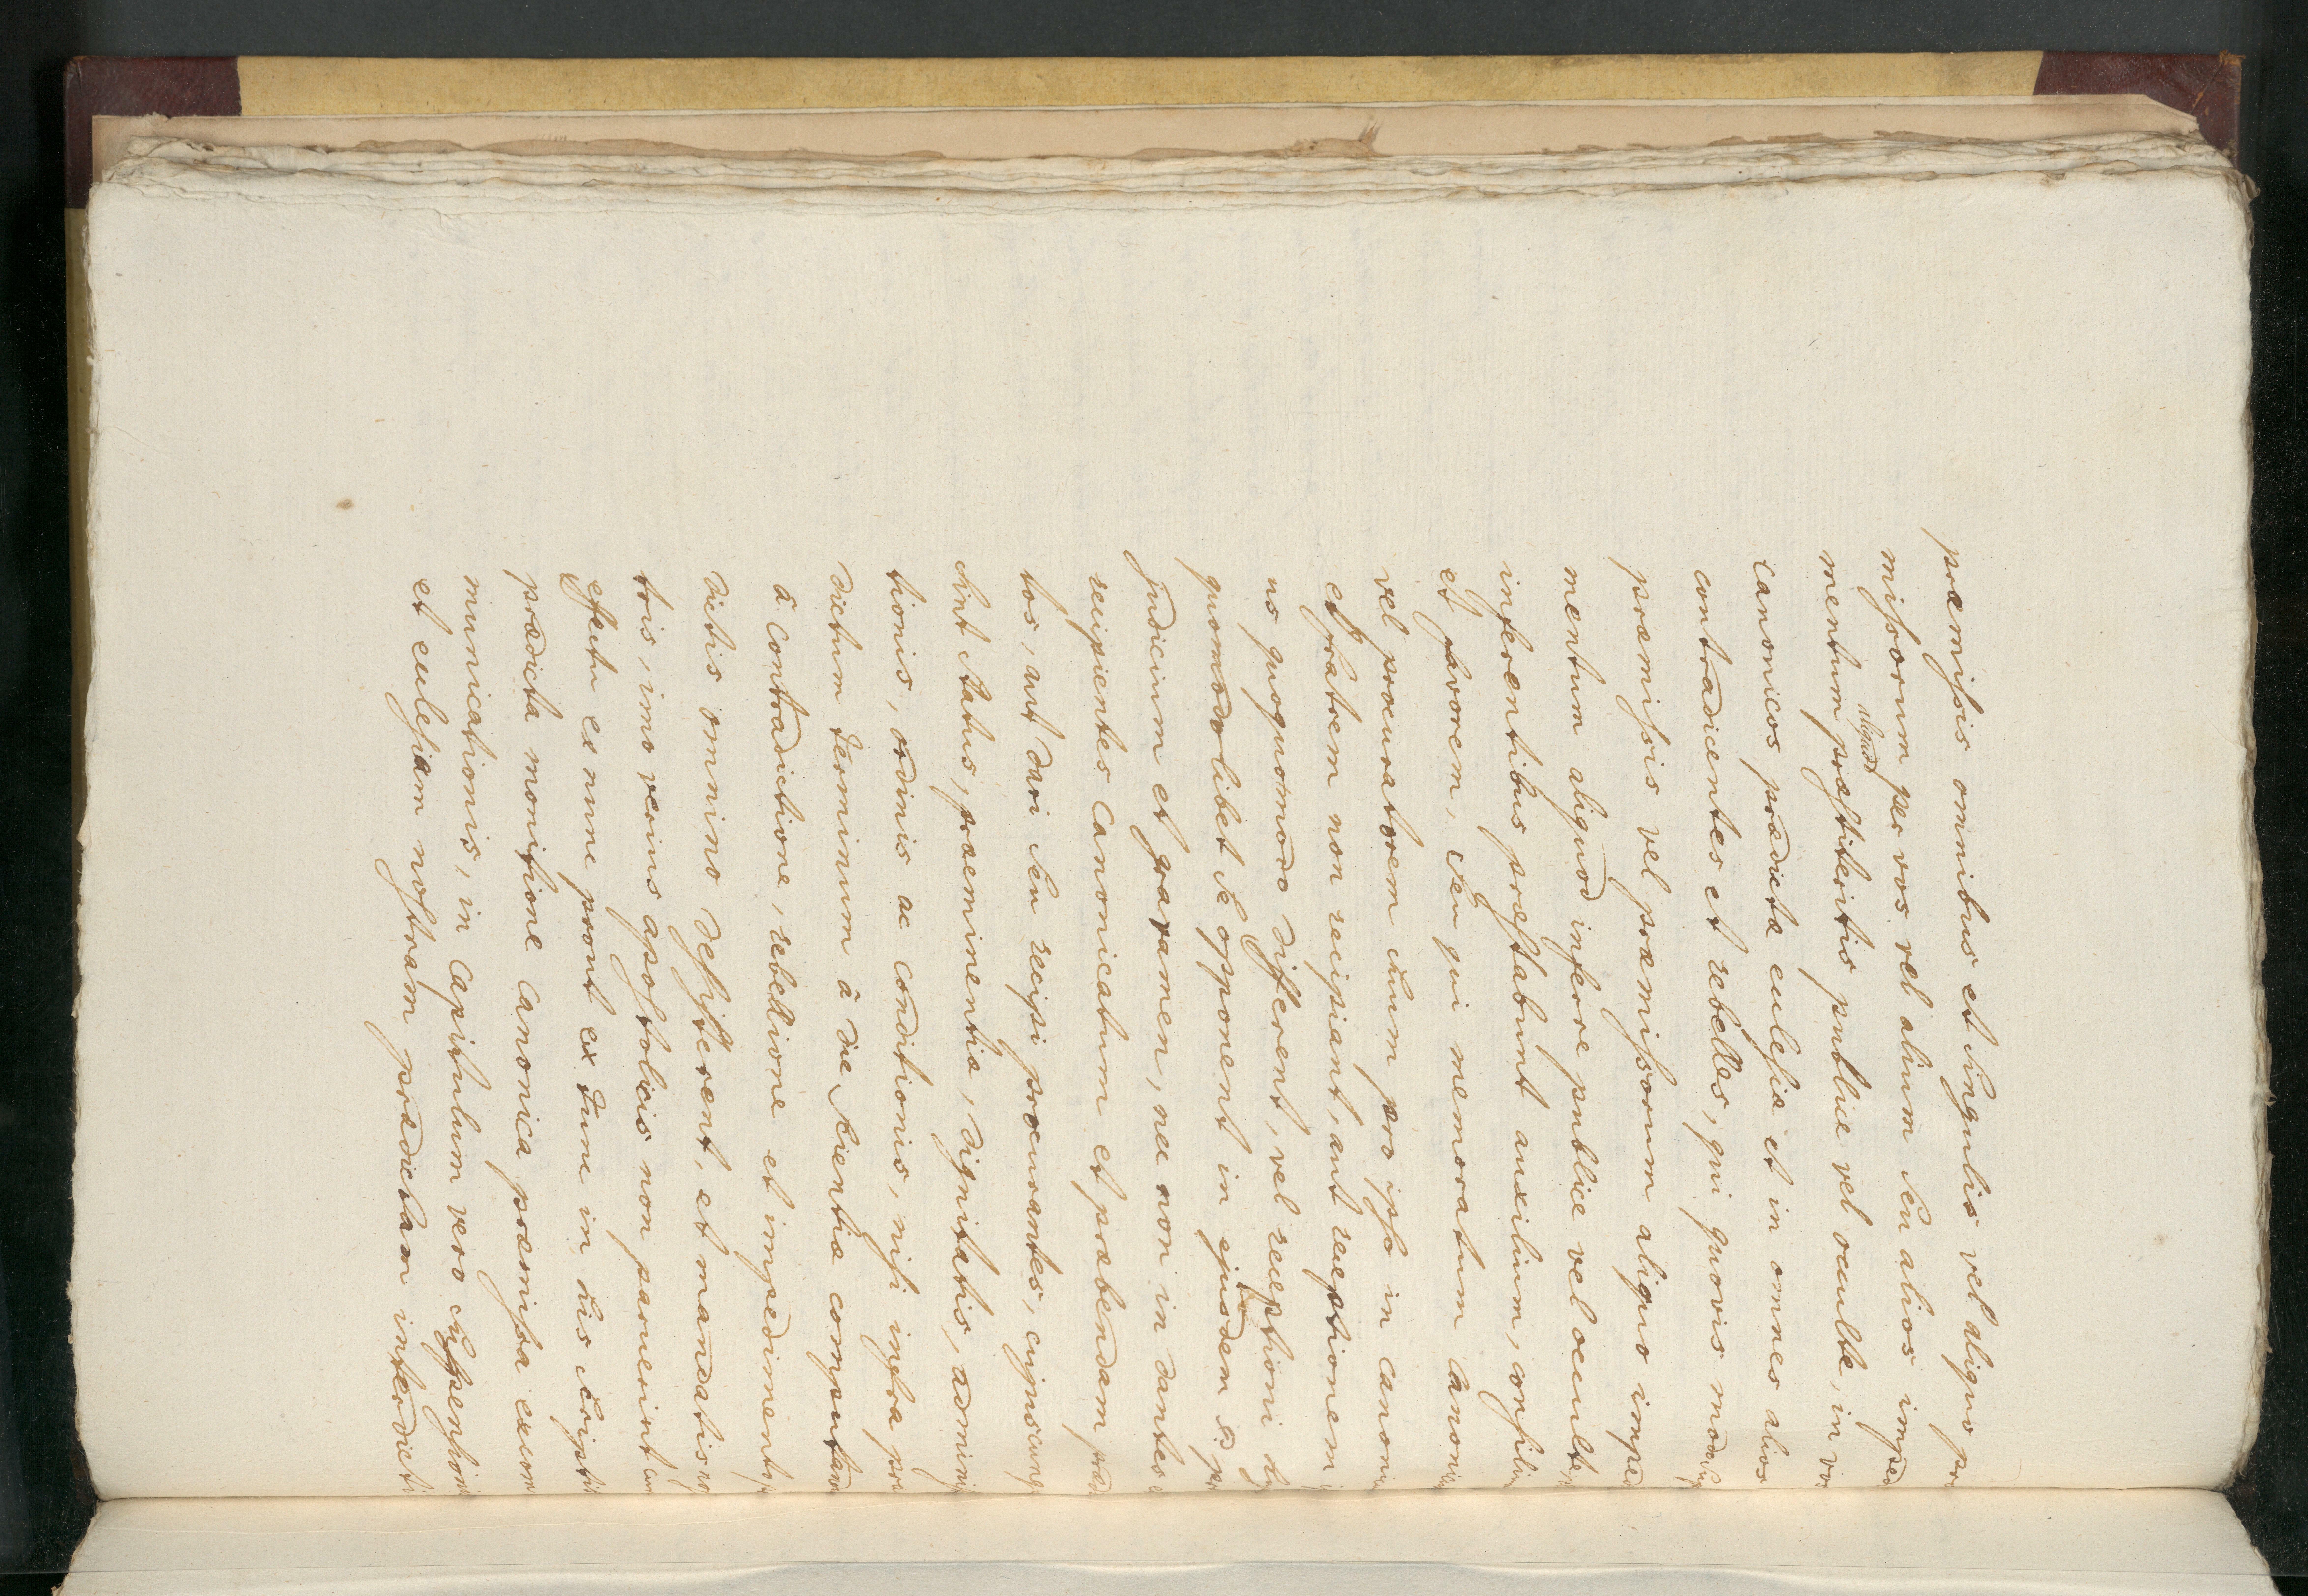 præmissis omnibus et singulis vel aliquo præ
missorum per vos vel alium seu alios imped
mentum aliquod præstiteritis publice vel occulte, in vos
canonicos prædictæ ecclesiæ et in omnes alios
contradicentes et rebelles, qui quovis modo
præmissis vel præmissorum aliquo imped
mentum aliquod inferre publice vel occulte
inferentibus præstabunt auxilium, consiliu
et favorem, seu qui memoratum canonic
vel procuratorem suum pro ipso in canoni
et fratrem non recipiant, aut receptionem
us quoquomodo different, vel receptioni
quomodolibet se opponent in ejusdem
judicium et gravamen, nec non in dantes
recipientes canonicatum et præbendam præd
tos, aut dari seu recipi procurantes, cujuscunq
sint status, præeminentiæ, dignitatis, adminis
tionis, ordinis ac conditionis, nisi infra præ
dictum terminum â die scientiæ computand
â contradictione, rebellione et impedimento
dictis omnino desisterent, et mandatis
tris, imo verius apostolicis non paruerint cum
effectu ex nunc prout ex tunc in his scriptis
prædicta monitione canonica præmissa excom
municationis, in capitulum vero suspensionis
et ecclesiam nostram prædictam interdicti